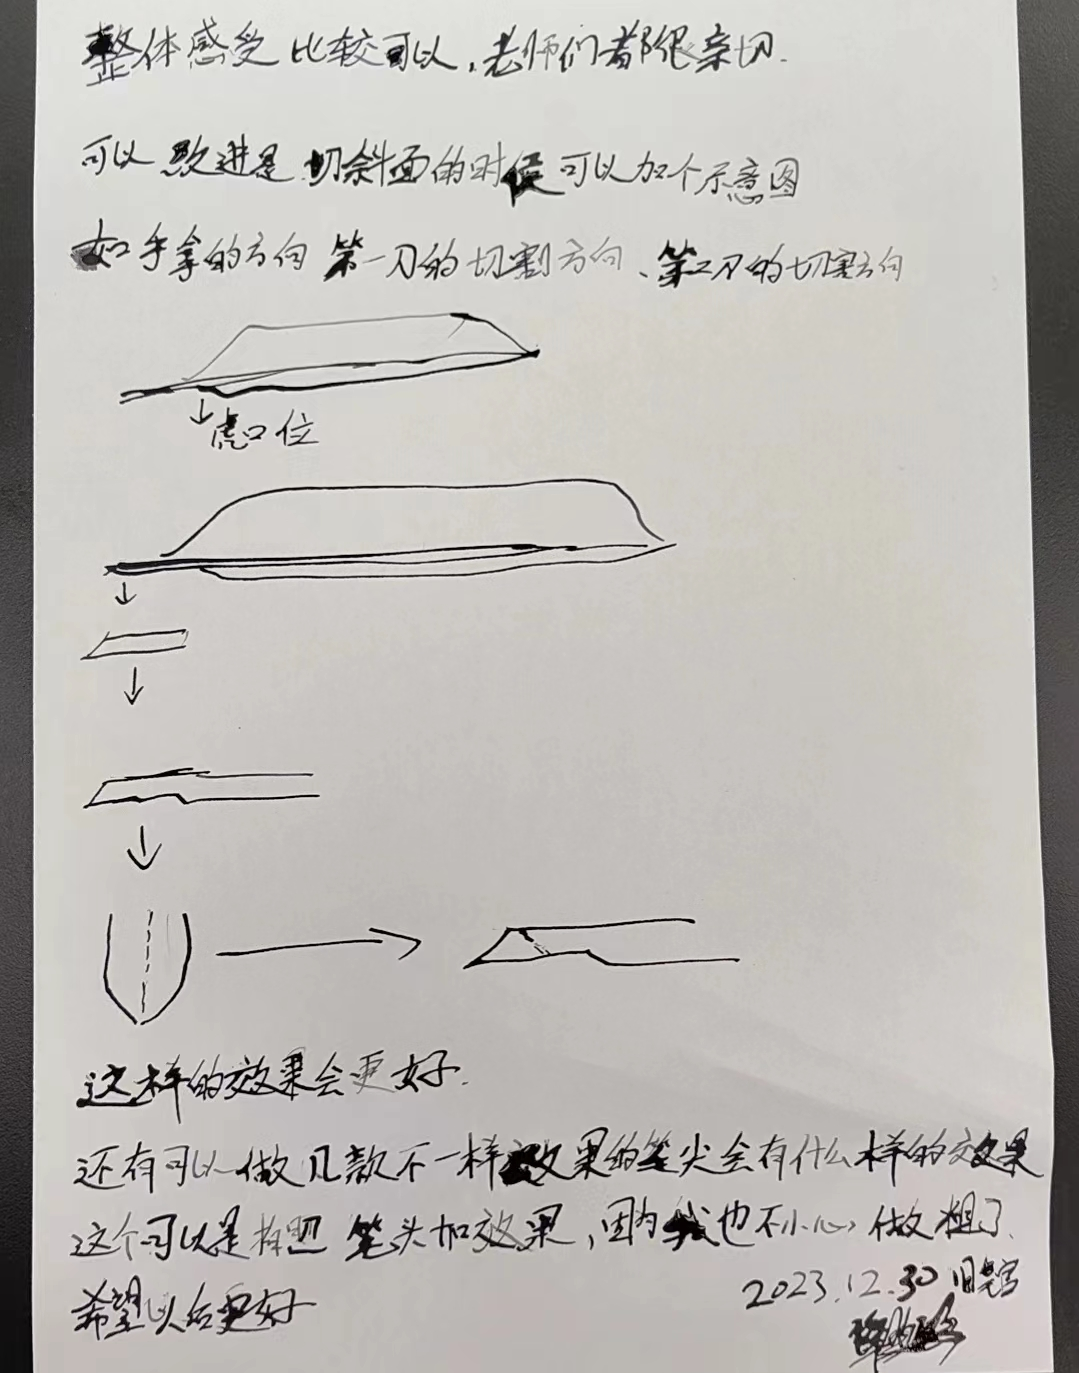 整体感受比较可以，老师们都很亲切.
可以改进是切斜面的时候可以加个示意图
如手拿的方向 第一刀的切割方向、第二刀的切割方向
虎口位
这样的效果会更好.
还有可以做几款不一样效果的笔尖会有什么样的效果
这个可以是按照笔头加效果，因为我也不小心做粗了.
希望以后更好
2023.12.30